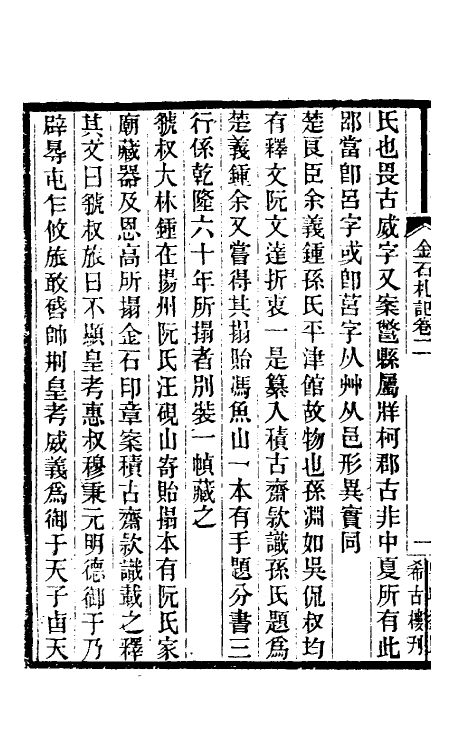 金石札記卷二
一
希古樓刊
氏也畏古威字又案鄨縣屬牂柯郡古非中夏所有此
郘當卽呂字或卽莒字从艸从邑形異實同
楚良臣余義鍾孫氏平津館故物也孫淵如吳侃叔均
有釋文阮文達折衷一是纂入積古齋款識孫氏題爲
楚義鍾余又嘗得其搨貽馮魚山一本有手題分書三
行係乾隆六十年所搨者別裝一幀藏之
虢叔大林鍾在揚州阮氏汪硯山寄貽搨本有阮氏家
廟藏器及恩高所搨金石印章案積古齋款識載之釋
其文曰虢叔旅曰不顯皇考惠叔穆秉元明德御于乃
辟㝵屯乍攸旅敢啓帥荆皇考威義爲御于天子卣天